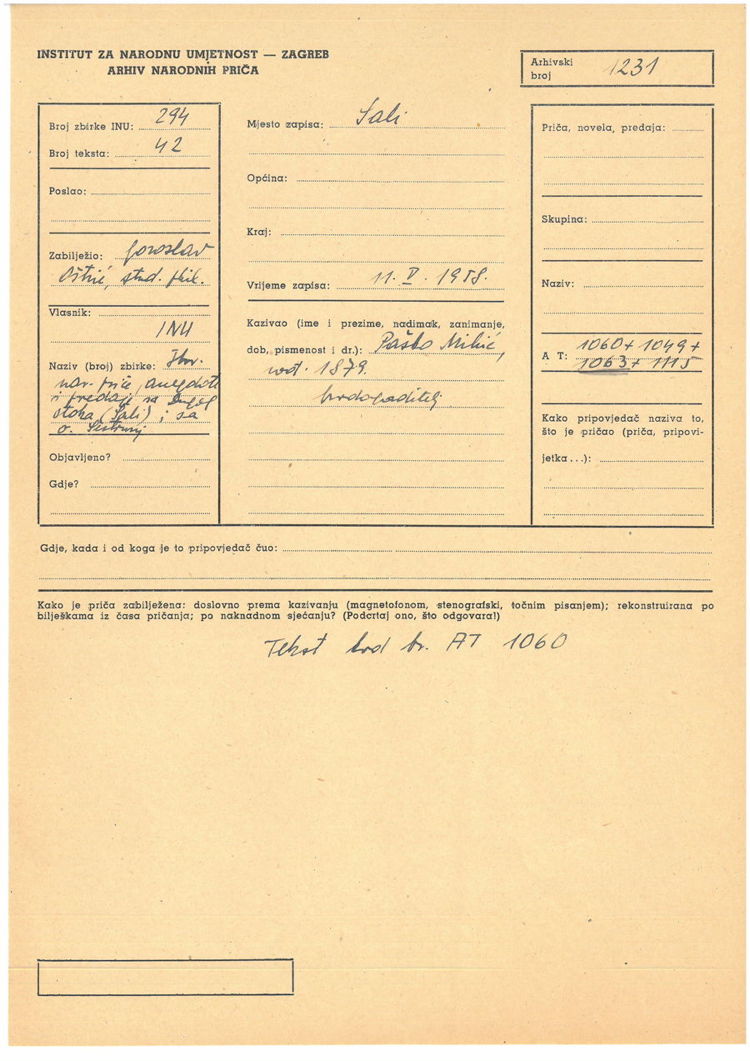 INSTITUT ZA NARODNU UMJETNOST — ZAGREB
ARHIV NARODNIH PRIČA
Arhivski
broj 1231
Broj zbirke INU: 294
Broj teksta: 42
Poslao:
Zabilježio: Jaroslav
Oštrić, stud. fil.
Vlasnik:
INU
Naziv (broj) zbirke: Zbor.
nar. priče, anegdote
i predaje sa Dugog
otoka (Sali) i sa
o. Sestrunj
Objavljeno?
Gdje?
Mjesto zapisa: Sali
Općina:
Kraj:
Vrijeme zapisa: 11. V. 1958.
Kazivao (ime i prezime, nadimak, zanimanje,
dob, pismenost i dr.): Paško Mihić,
rođ. 1879.
Priča, novela, predaja:
Skupina:
Naziv:
A T: 1060 + 1049 +
1063 + 1115
Kako pripovjedač naziva to,
što je pričao (priča, pripovi-
jetka...):
Gdje, kada i od koga je to pripovjedač čuo:
Kako je priča zabilježena: doslovno prema kazivanju (magnetofonom, stenografski, točnim pisanjem); rekonstruirana po
bilješkama iz časa pričanja; po naknadnom sjećanju? (Podcrtaj ono, što odgovara!)
Tekst kod br. AT 1060